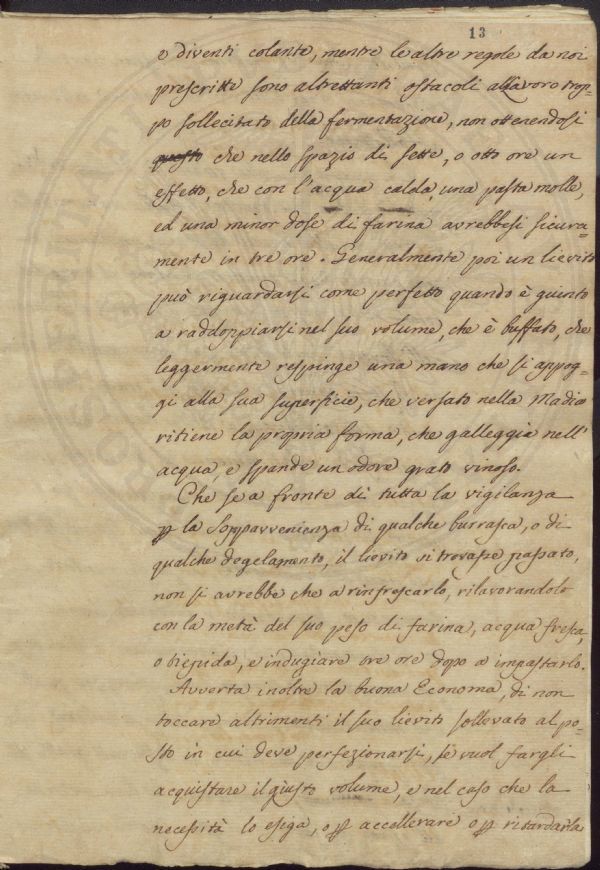 13
o diventi colante, mentre le altre regole da noi
prescritte sono altrettanti ostacoli al lavoro trop=
po sollecitato della fermentazione, non ottenendosi
questo che nello spazio di sette, o otto ore un
effetto, che con l'acqua calda, una pasta molle,
ed una minor dose di farina avrebbesi sicura=
mente in tre ore. Generalmente poi un lievito
può riguardarsi come perfetto quando è giunto
a raddoppiarsi nel suo volume, che è buffato, che
leggermente respinge una mano che si appog=
gi alla sua superficie, che versato nella Madia
ritiene la propria forma, che galleggia nell'
acqua, e spande un odore grato vinoso.
Che se a fronte di tutta la vigilanza
p la sopravvenienza di qualche burrasca, o di
qualche degelamento, il lievito si trovasse passato,
non si avrebbe che a rinfrescarlo, rilavorandolo
con la metà del suo peso di farina, acqua fresca,
o tiepida, e indugiare tre ore dopo a impastarlo.
Avverta inoltre la buona Economa, di non
toccare altrimenti il suo lievito sollevato al po=
sto in cui deve perfezionarsi, se vuol fargli
acquistare il giusto volume, e nel caso che la
necessità lo esiga, o p accellerare o p ritardarla